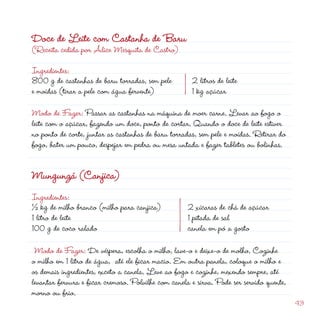 Doce de Leite com Castanha de Baru
(Receita cedida por Alice Mesquita de Castro)
Ingredientes:
800 g de castanhas de baru torradas, sem pele e moídas (tirar a pele com água fervente)
2 litros de leite
1 kg açúcar
Modo de Fazer: Passar as castanhas na máquina de moer carne. Levar ao fogo o
leite com o açúcar, fazendo um doce, ponto de cortar. Quando o doce de leite estiver
no ponto de corte, juntar as castanhas de baru torradas, sem pele e moídas. Retirar do
fogo, bater um pouco, despejar em pedra ou mesa untada e fazer tabletes ou bolinhas.
Mungunzá (Canjica)
Ingredientes:
½ kg de milho branco (milho para canjica)
1 litro de leite
100 g de coco ralado
2 xícaras de chá de açúcar
1 pitada de sal
canela em pó a gosto
Modo de Fazer: De véspera, escolha o milho, lave-o e deixe-o de molho. Cozinhe
o milho em 1 litro de água, até ele ficar macio. Em outra panela, coloque o milho e
os demais ingredientes, exceto a canela. Leve ao fogo e cozinhe, mexendo sempre, até
levantar fervura e ficar cremoso. Polvilhe com canela e sirva. Pode ser servido quente,
morno ou frio.
43